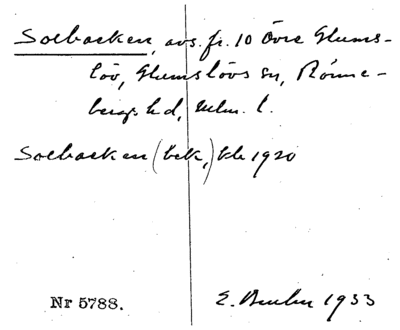 Solbacken, avs. fr. 10 Övre Glums-
löv, Glumslövs sn, Rönne-
bergs hd, Malm. l.
Solbacken (bek,) kb 1920
Nr 5788.
E. 1933